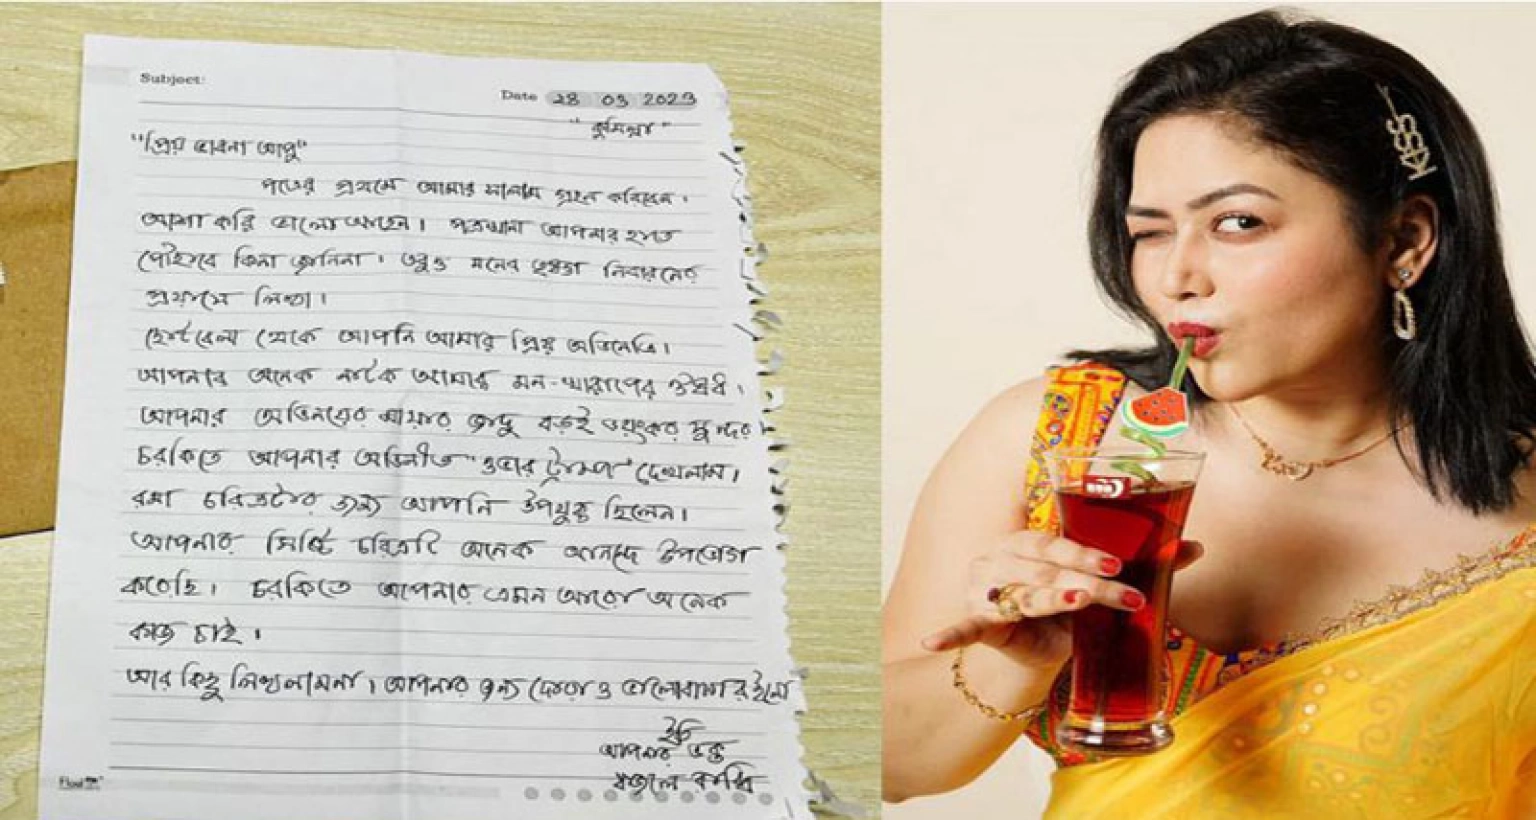 Subject:
Date 28 03 2023
"কুমিল্লা"
"প্রিয় ভাবনা আপু"
পত্রের প্রথমে আমার সালাম গ্রহন করিবেন।
আশা করি ভালো আছেন। পত্রখানা আপনার হাতে
পৌছাবে কিনা জানিনা। তবুও মনের তৃষ্ণা নিবারনের
প্রয়াসে লিখা।
ছোটবেলা থেকে আপনি আমার প্রিয় অভিনেত্রি।
আপনার অনেক নাটক আমার মন-খারাপের ঔষধী।
আপনার অভিনয়ের মায়ার জাদু বড়ই ভয়ংকর সুন্দর।
চরকিতে আপনার অভিনীত "ওভার ট্রাম্প" দেখলাম।
রমা চরিত্রটার জন্য আপনি উপযুক্ত ছিলেন।
আপনার মিষ্টি চরিত্রটি অনেক আনন্দে উপভোগ
করেছি। চরকিতে আপনার এমন আরো অনেক
কাজ চাই।
আর কিছু লিখলামনা। আপনার জন্য দোয়া ও ভালোবাসা
ইতি
আপনার ভক্ত
KISS